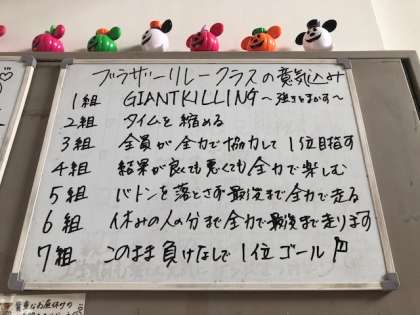 ブラザーリレークラスの意気込み
1組 GIANTKILLING～強きをたおす～
2組 タイムを縮める
3組 全員が全力で協力して1位目指す
4組 結果が良くても悪くても全力で楽しむ
5組 バトンを落とさず最後まで全力で走る
6組 休みの人の分まで全力で最後まで走ります
7組 このまま負けなしで1位ゴール